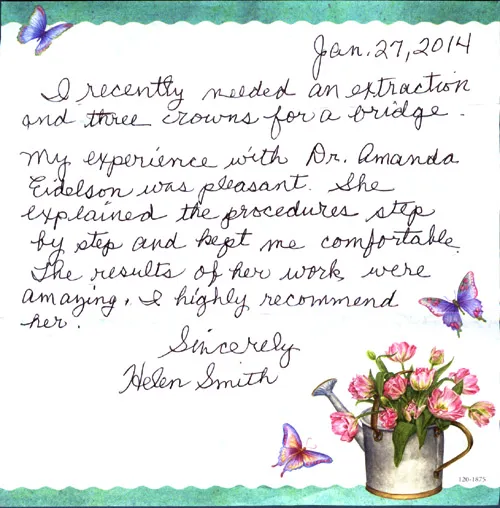 Jan. 27, 2014
I recently needed an extraction
and three crowns for a bridge.
My experience with Dr. Amanda
Eidelson was pleasant. She
explained the procedures step
by step and kept me comfortable.
The results of her work were
amazing. I highly recommend
her.
Sincerely
Helen Smith
120-1875